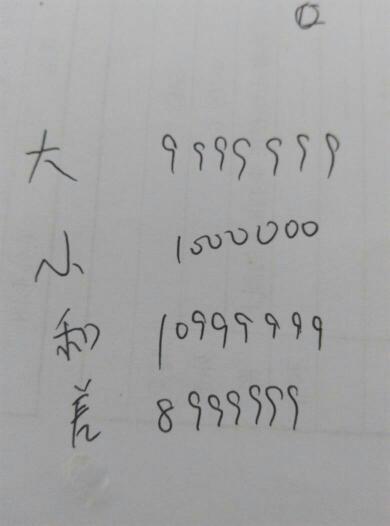 大 9999999
小 1000000
和 10999999
差 8999999